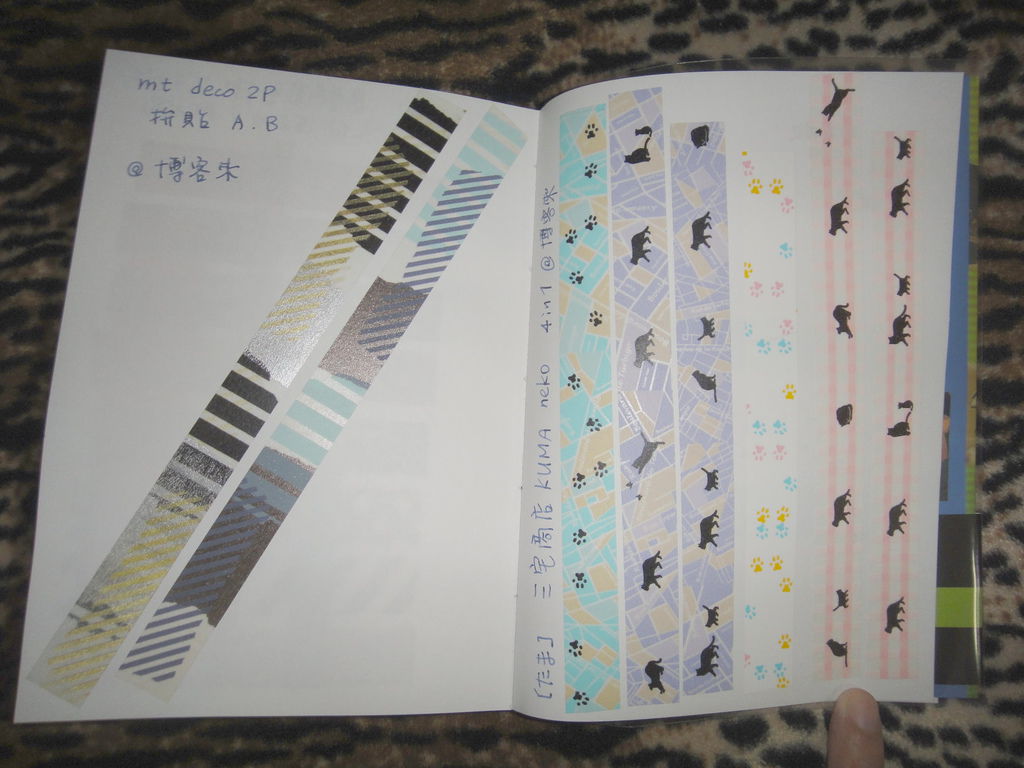 mt deco 2P
拼貼 A.B
@博客來
[たま] 三宅商店 KUMA neko 4in1 @博客來